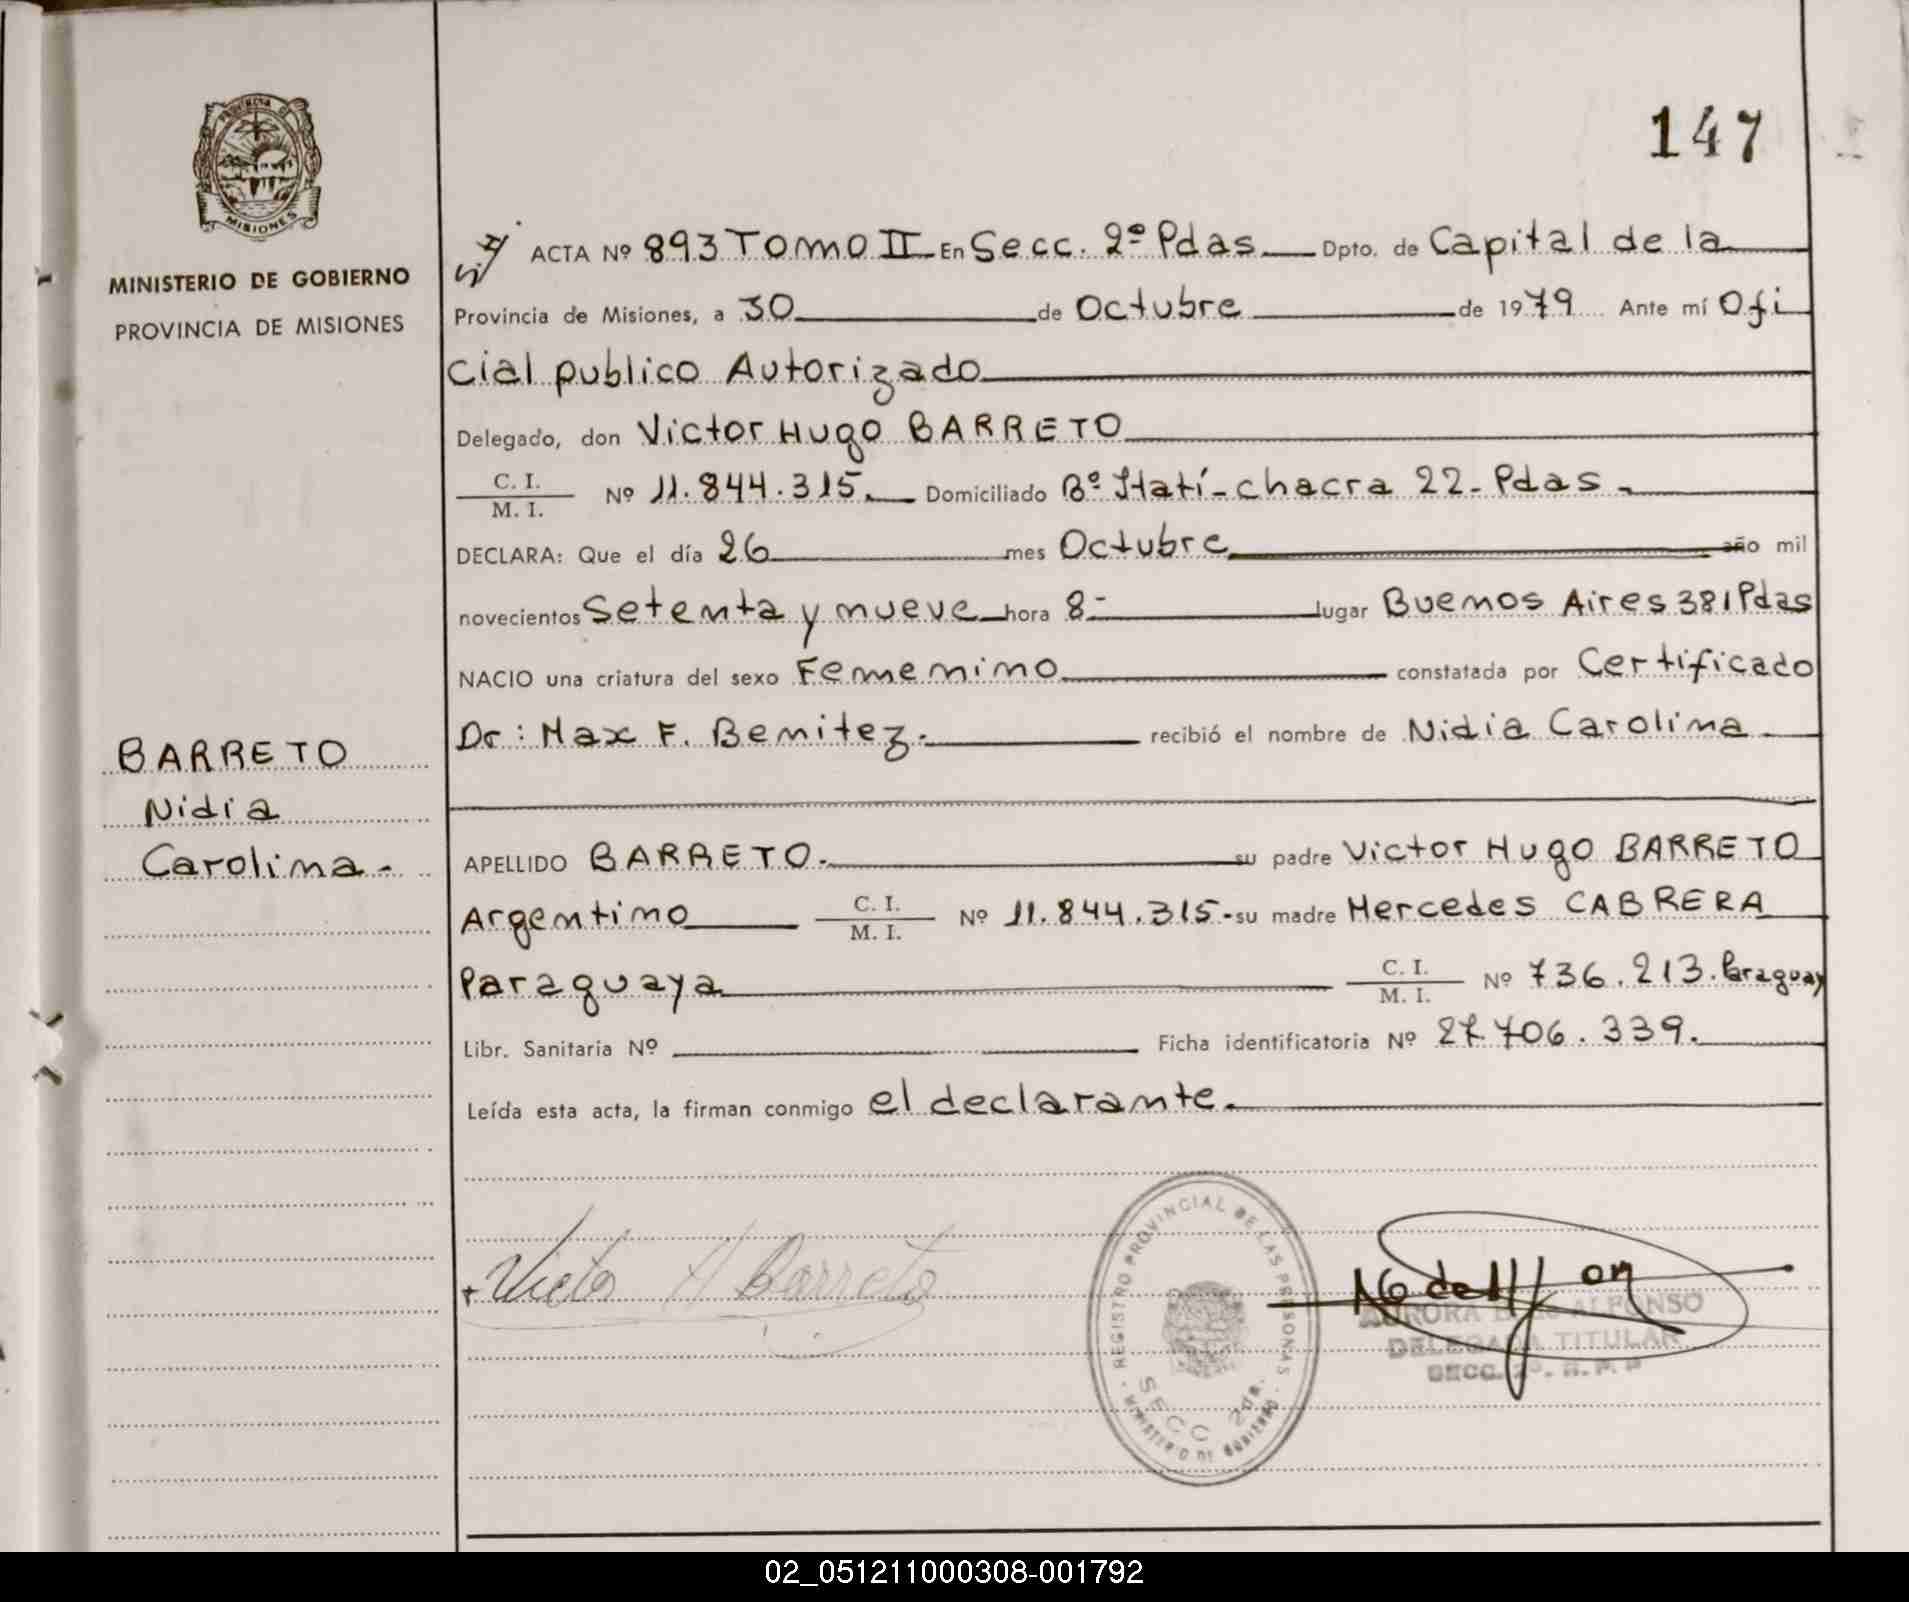 147
PROVINCIA DE
MISIONES
MINISTERIO DE GOBIERNO
PROVINCIA DE MISIONES
BARRETO
Nidia
Carolina-
ACTA Nº 893 Tomo II En Secc. 2º Pdas Dpto. de Capital de la
Provincia de Misiones, a 30 de Octubre de 1979 Ante mí Ofi
cial publico Autorizado
Delegado, don Victor Hugo BARRETO
C. I.
M. I. Nº 11.844.315. Domiciliado Bº Itatí-chacra 22-Pdas-
DECLARA: Que el día 26 mes Octubre año mil
novecientos Setenta y nueve hora 8- lugar Buenos Aires 381 Pdas
NACIO una criatura del sexo Femenino constatada por Certificado
Dr: Max F. Benitez. recibió el nombre de Nidia Carolina
APELLIDO BARRETO. su padre Victor Hugo BARRETO
Argentino C. I.
M. I. Nº 11.844.315- su madre Mercedes CABRERA
Paraguaya C. I.
M. I. Nº 736.213. Paraguay
Libr. Sanitaria Nº Ficha identificatoria Nº 27.706.339.
Leída esta acta, la firman conmigo el declarante.
Victo H Barreto
REGISTRO PROVINCIAL DE LAS PERSONAS
SECC 2da.
MINISTERIO DE GOBIERNO
AURORA ALFONSO
DELEGADA TITULAR
SECC. 2º. R. P. P
02_051211000308-001792